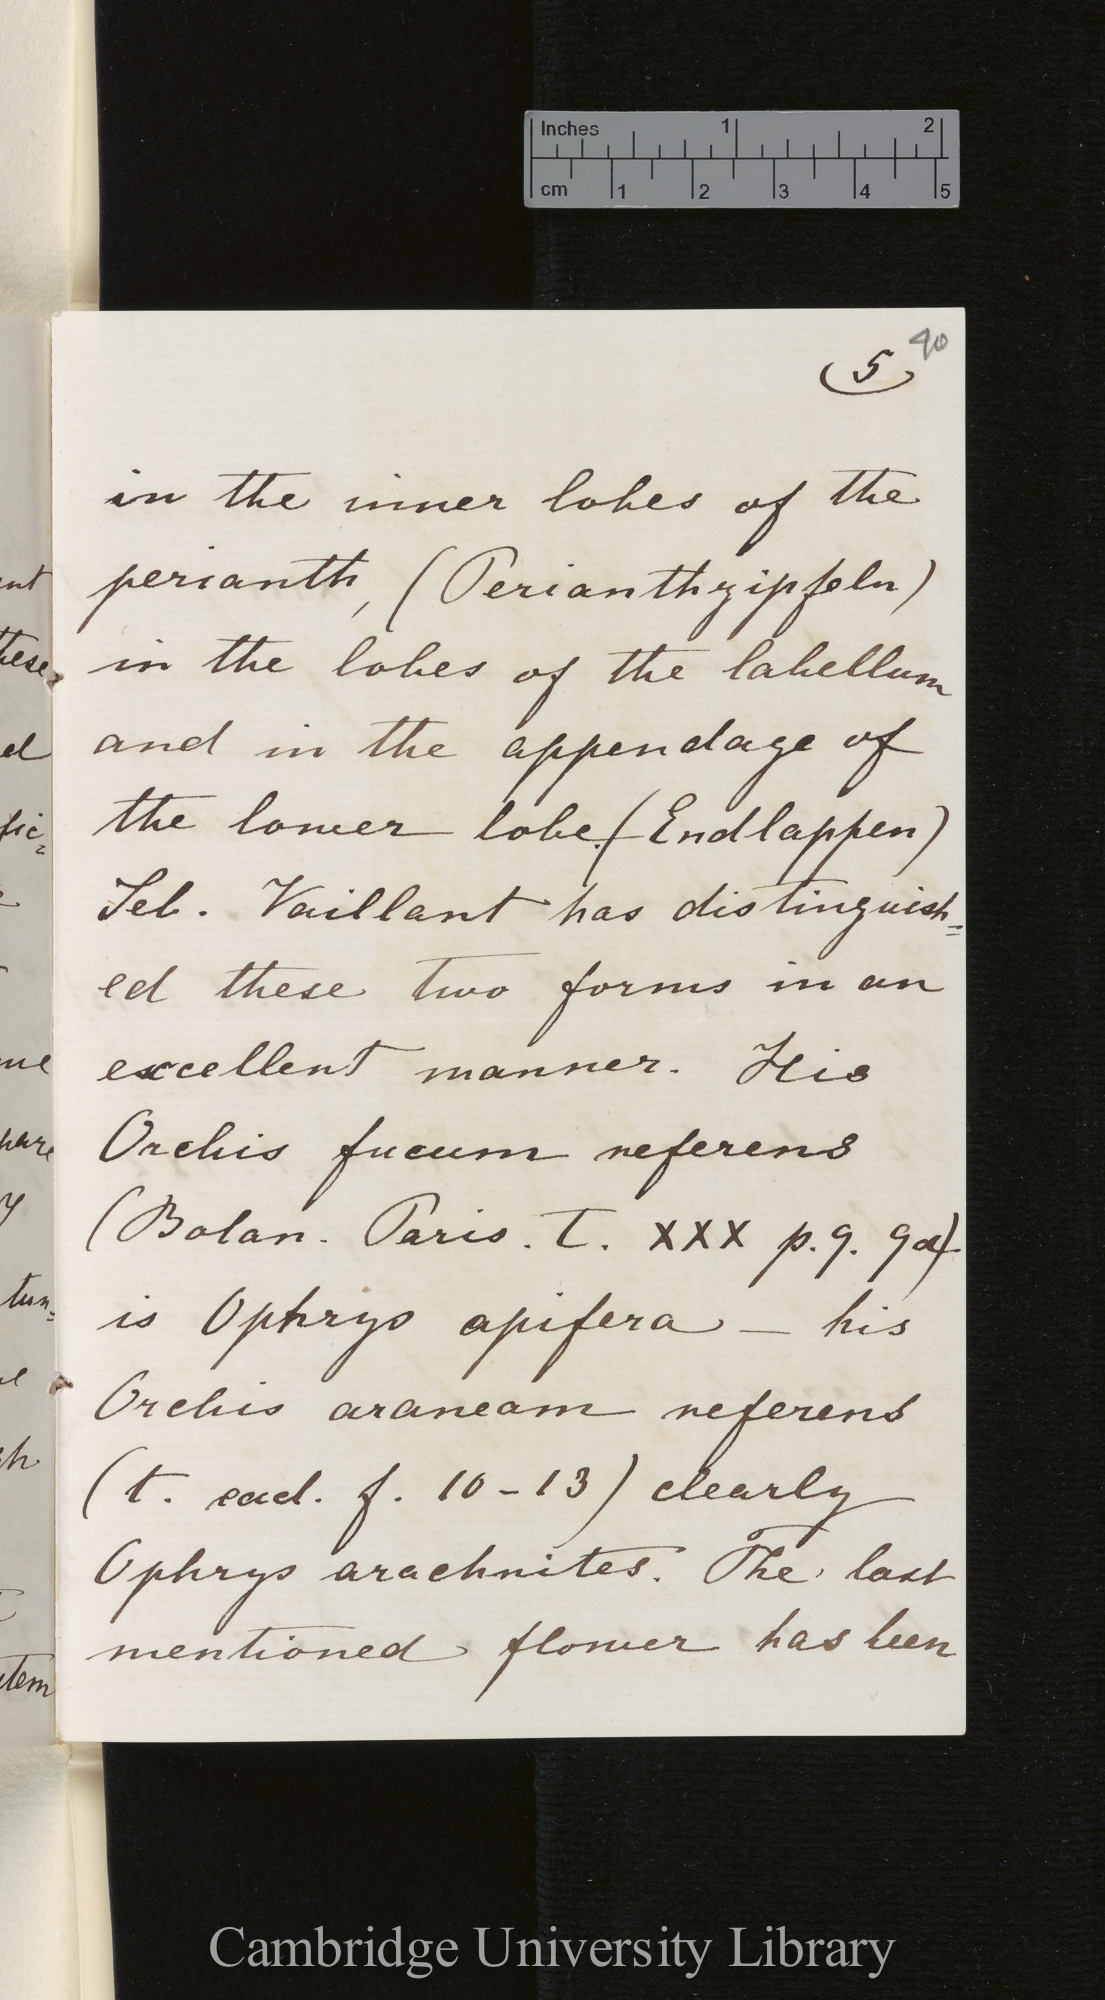 Inches 1 2
cm 1 2 3 4 5
90
5
in the inner lobes of the
perianth, (Perianthzipfeln)
in the lobes of the labellum
and in the appendage of
the lower lobe.(Endlappen)
Seb. Vaillant has distinguish=
ed these two forms in an
excellent manner. His
Orchis fucum referens
(Botan. Paris. T. XXX p.9. 9a)
is Ophrys apifera — his
Orchis araneam referens
(t. ead. f. 10-13) clearly
Ophrys arachnites. The last
mentioned flower has been
nt
these
el
fic=
me
pare
y
tun=
ch
tem
Cambridge University Library